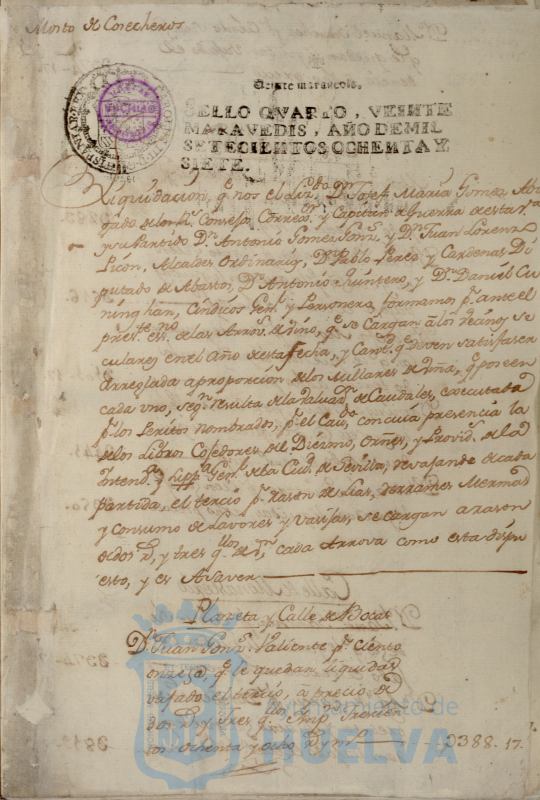 Mosto de Cosecheros
Veinte maravedis.
SELLO QVARTO, VEINTE
MARAVEDIS, AÑO DE MIL
SETECIENTOS OCHENTA Y
SIETE.
Liquidacion, q.e nos el Liz.do D.n Josef Maria Gomez Abo
gado de los R.s Consejos Correg.or y Capitan à Guerra de esta
y su Partido D.n Antonio Gomez Gonz.z y D.n Juan Lorenzo
Picon, Alcaldes Ordinarios, D.n Pablo Perez y Cardenas Di
putado de Abastos, D.n Antonio Quintero, y D.n Daniel Cu
ninghan, Sindicos Gen.l y Personero, formamos p.r ante el
pres.te es.no de las Arrov.s de vino, q.e se Cargan à los vecinos se
culares en el año de esta fecha, y Cant.d q.e deven satisfaser
Arreglada a proporcion de los Millares de viña, q.e poseen
cada uno, seg.n resulta de la Valuaz.n de Caudales, executada
p.r los Peritos nombrados, p.r el Cav.do con cuia presencia la
de los Libros Cojedores de Diezmo, orns, y Provid.s de la
Intend.a y Supp.a Gen.l de la Ciud.d de Sevilla, devajando de cada
partida, el tercio p.r rason de Lias, derrames Mermas
y Consumo de Lavores y Vasijas, se cargan a rason
de dos r.s y tres q.llos de v.n cada Arrova como esta dispu
esto, y es A saver
Plazeta y Calle de Bocas
D.n Juan Gonz.z Valiente p.r ciento
q.e le quedan liquidas
vajado el tercio, a precio de
dos r.s y tres q.llos Imp.n Trescien
tos ochenta y ocho r.s y m.s 0388.17.
Ayuntamiento de
HUELVA